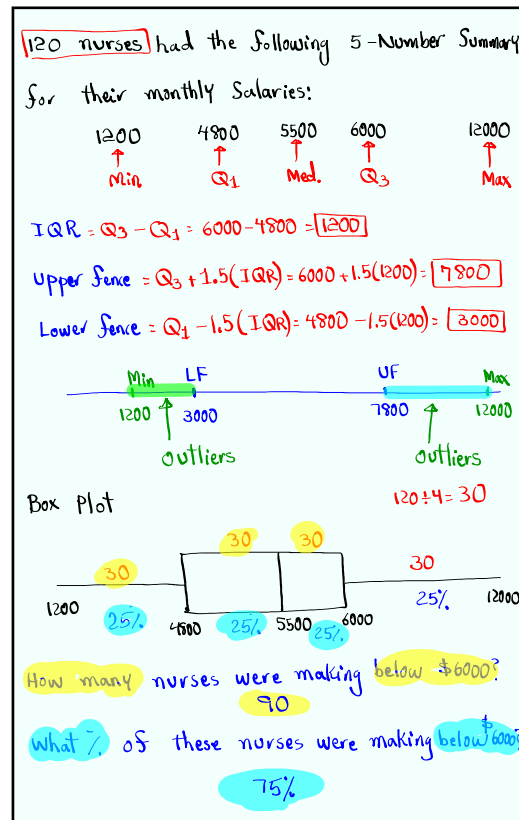 120 nurses had the following 5-Number Summary
for their monthly Salaries:
1200 4800 5500 6000 12000
Min Q1 Med. Q3 Max
IQR = Q3 - Q1 = 6000 - 4800 = 1200
Upper fence = Q3 + 1.5(IQR) = 6000 + 1.5(1200) = 7800
Lower fence = Q1 - 1.5(IQR) = 4800 - 1.5(1200) = 3000
Min LF UF Max
1200 3000 7800 12000
outliers outliers
Box Plot 120÷4=30
30 30 30 30
1200 25% 4800 25% 5500 25% 6000 25% 12000
How many nurses were making below $6000?
90
What % of these nurses were making below $6000?
75%